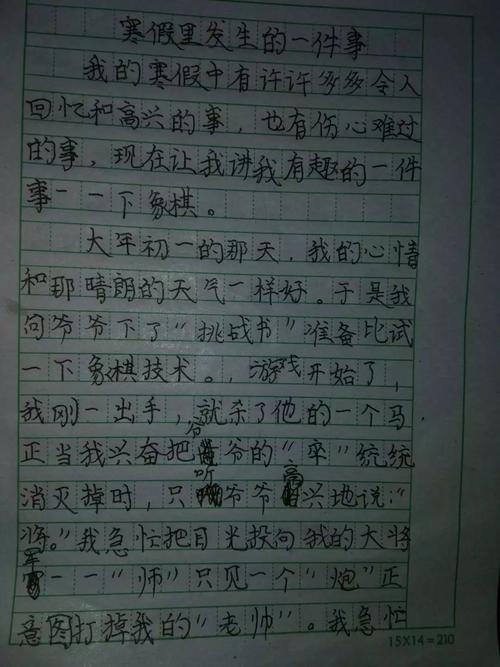 寒假里发生的一件事
我的寒假中有许许多多令人
回忆和高兴的事，也有伤心难过
的事，现在让我讲我有趣的一件
事一一下象棋。
大年初一的那天，我的心情
和那晴朗的天气一样好。于是我
向爷爷下了“挑战书”准备比试
一下象棋技术。，游戏开始了，
我刚一出手，就杀了他的一个马
正当我兴奋把爷爷的“卒”统统
消灭掉时，只听爷爷高兴地说：“
将。”我急忙把目光投向我的大将
军一一“师”只见一个“炮”正
意图打掉我的“老帅”。我急忙
15×14=210